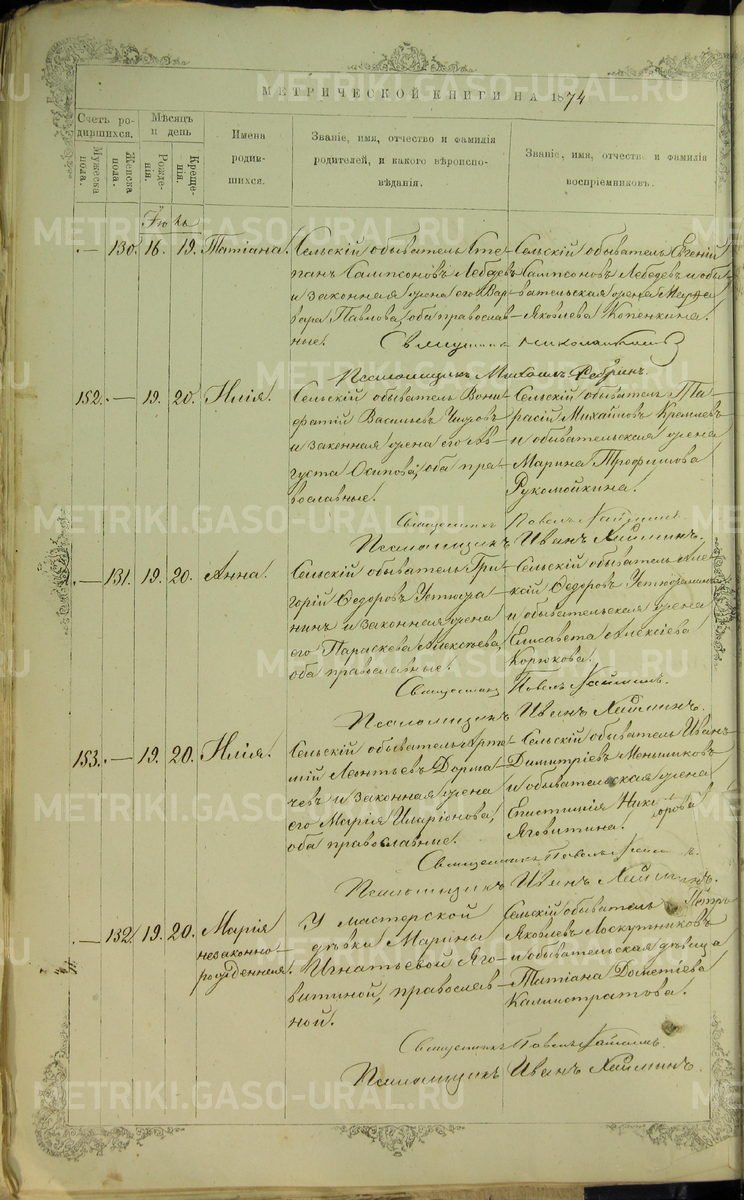 МЕТРИЧЕСКОЙ КНИГИ НА 1874
Счетъ родившихся.
Мужеска пола.
Женска пола.
Мѣсяцъ и день
Рожденія.
Крещенія.
Имена родившихся.
Званіе, имя, отчество и фамилія родителей, и какого вѣроисповѣданія.
Званіе, имя, отчество и фамилія воспріемниковъ.
130. 16. 19. Татіана.
Сельскій обыватель Сте-
панъ Сампсоновъ Лебедевъ
и законная жена его Вар-
вара Павлова, оба православ-
ные.
Сельскій обыватель Евгеній
Сампсоновъ Лебедевъ и обы-
вательская жена Марѳа
Яковлева Копенкина.
Псаломщикъ Михаилъ
152. 19. 20. Илія.
Сельскій обыватель Вони-
фатій Васильевъ
и законная жена его Ав-
густа Осипова, оба пра-
вославные.
Сельскій обыватель Та-
расій Михайловъ Кремлевъ
и обывательская жена
Марина Трофимова
Рукомойкина.
Священникъ Павелъ
Псаломщикъ Иванъ Хайминъ.
131. 19. 20. Анна.
Сельскій обыватель Гри-
горій Ѳедоровъ Устюжа-
нинъ и законная жена
его Параскева Алексѣева,
оба православные.
Сельскій обыватель Але-
ксій Ѳедоровъ Устюжанинъ
и обывательская жена
Елисавета Алексіева
Корюкова.
Священникъ Павелъ
Псаломщикъ Иванъ Хайминъ.
153. 19. 20. Илія.
Сельскій обыватель Арте-
мій Леонтьевъ Дорма-
чевъ и законная жена
его Марія Иларіонова,
оба православные.
Сельскій обыватель Иванъ
Димитріевъ Меньшиковъ
и обывательская жена
Епистимія Никифорова
Яговитина.
Священникъ Павелъ
Псаломщикъ Иванъ Хайминъ.
132. 19. 20. Марія
незаконно-
рожденная.
У мастерской
дѣвки Марины
Игнатьевой Яго-
витиной, православ-
ной.
Сельскій обыватель Петръ
Яковлевъ Лоскутниковъ
и обывательская дѣвица
Татіана Дометіева
Калистратова.
Священникъ Павелъ
Псаломщикъ Иванъ Хайминъ.
METRIKI.GASO-URAL.RU